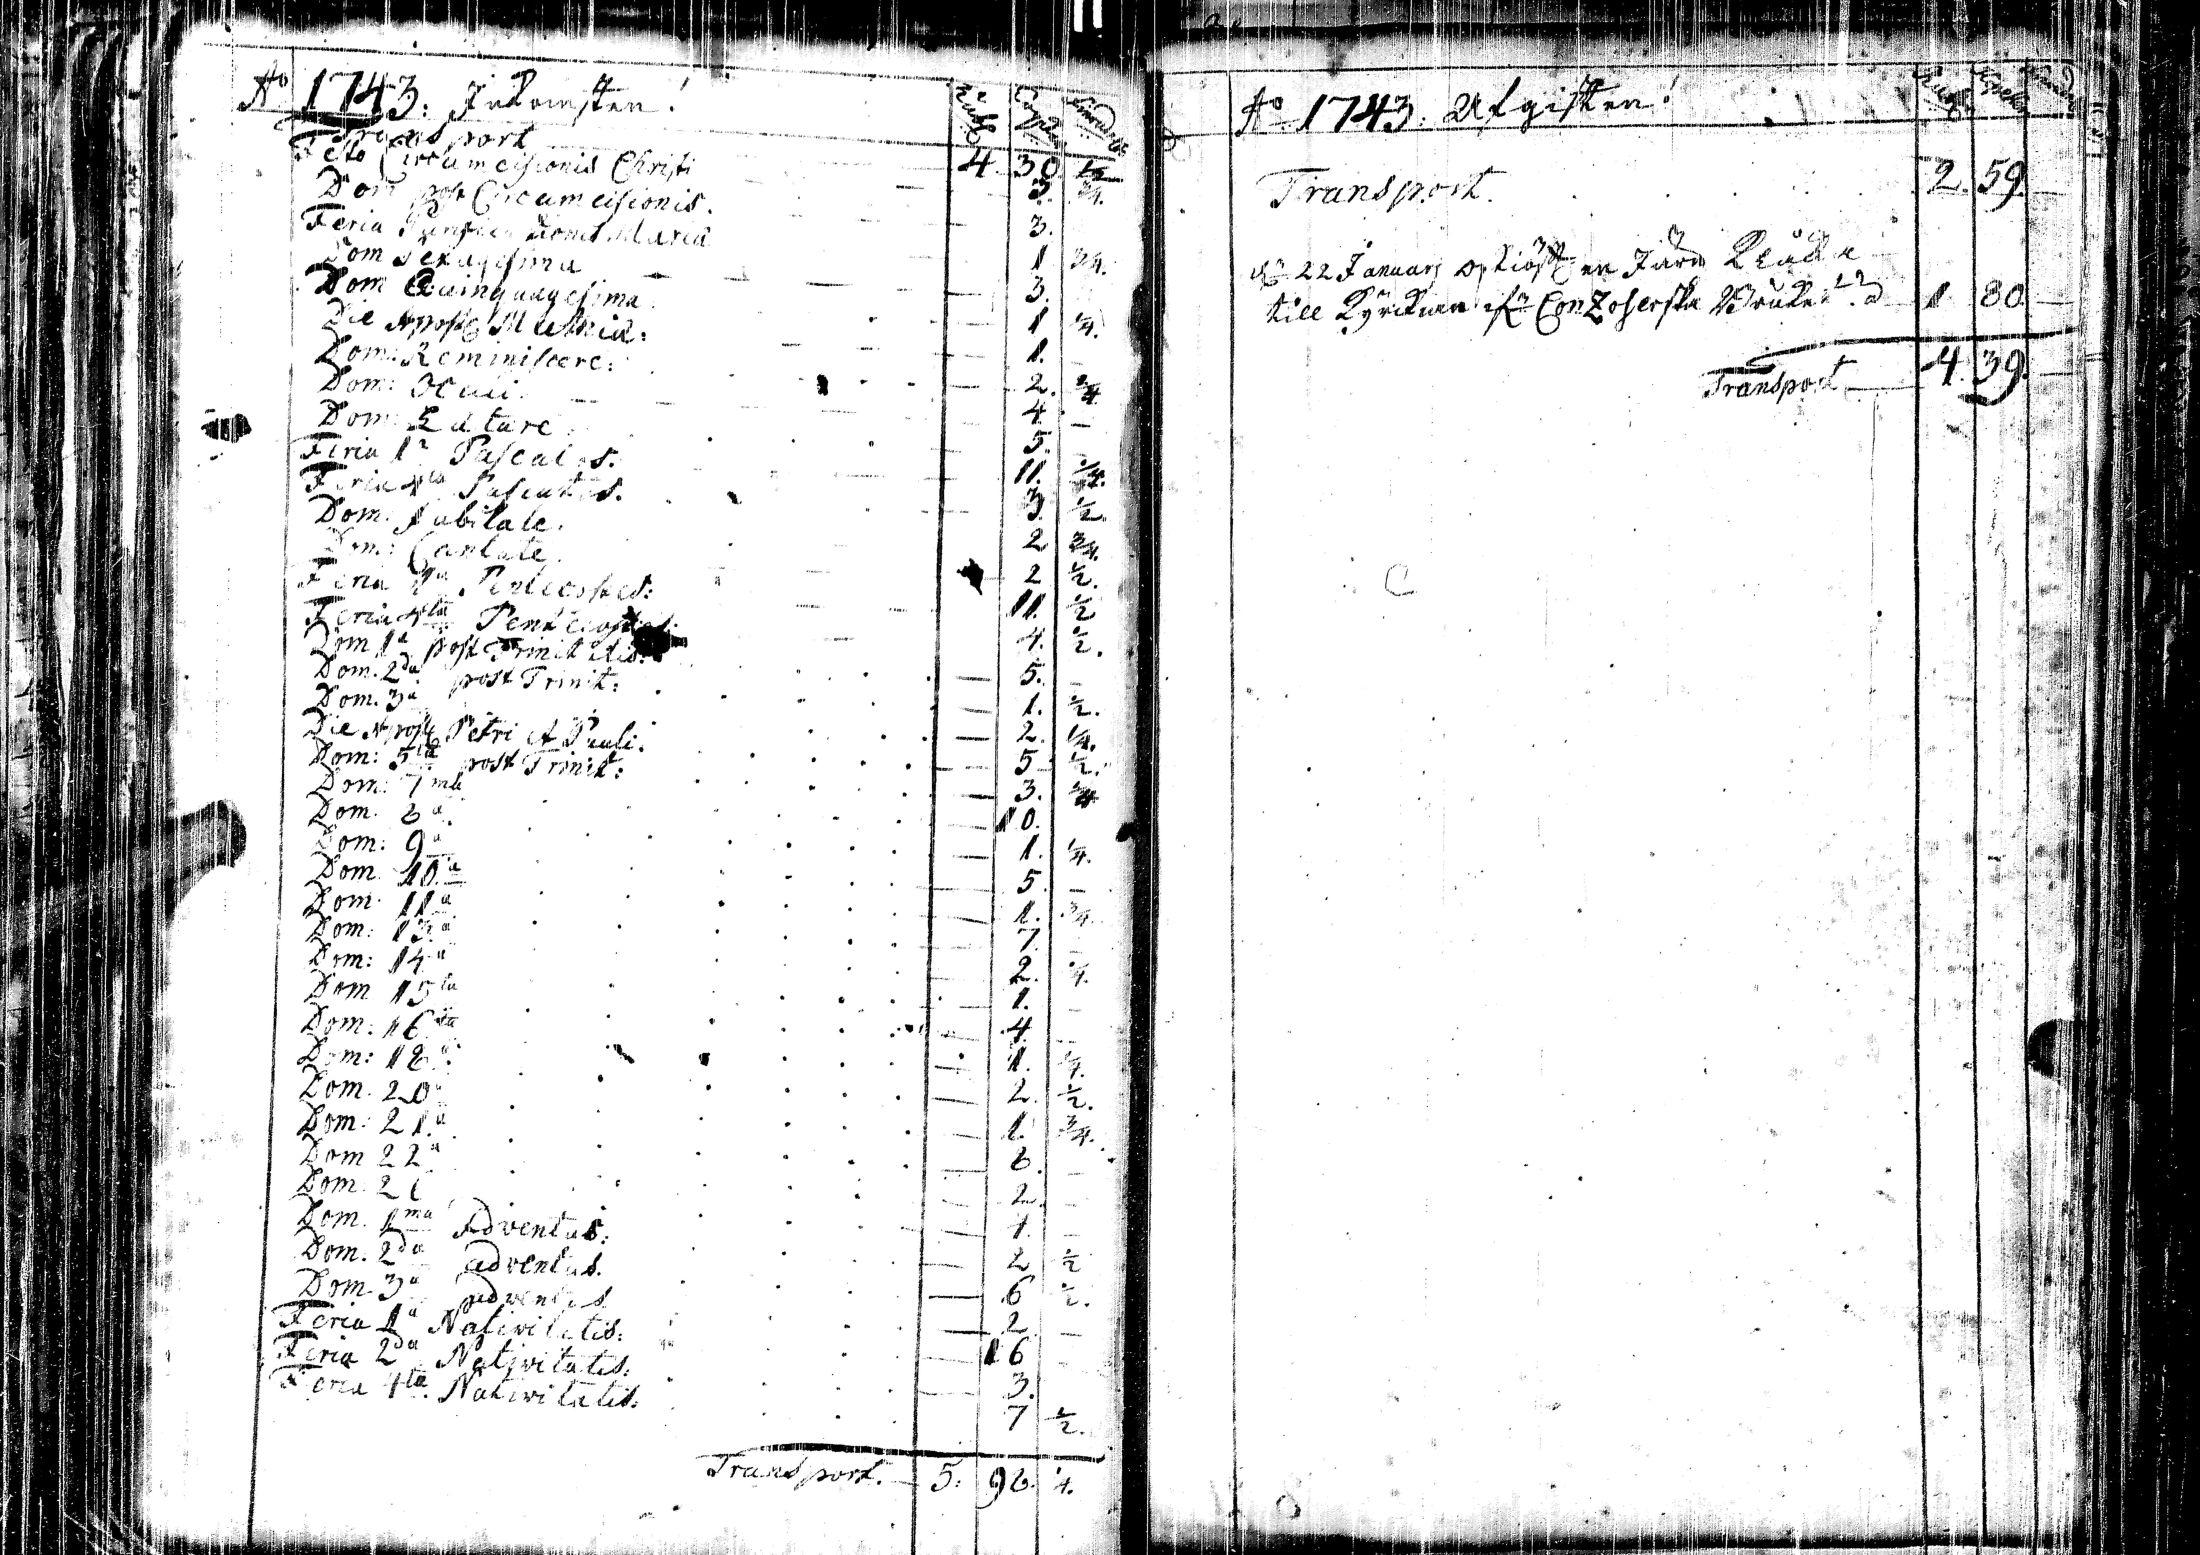 Ao 1743: Inkomsten! Rubl Copek
Transport 4 30 1/2
Festo Circumcisionis Christi 3. 3/4.
Dom post Circumcisionis. 3.
Feria Purificationis Mariæ 1 3/4.
Dom Sexagesima 3.
Dom Quinquagesima 1 1/4.
Die Apost Mathiæ: 1.
Dom: Reminiscere: 2. 3/4
Dom: Oculi. 4 —
Dom: Lætare. 5. —
Feria 1a Pascatos. 11. 1/4.
Feria 4ta Pascatos. 3 1/2.
Dom. Jubilate. 2 3/4.
Dom: Cantate. 2 1/2.
Feria Pentecostes: 11. 1/2
Feria 4ta Pentecostes: 4. 1/2.
Dom 1a post Trinitatis: 5. —
Dom. 2da post Trinit: 1. 1/2.
Dom. 3a 2. 1/4.
Die Apost Petri et Pauli. 5 1/2.
Dom: 5ta post Trinit: 3. 3/4
Dom: 7ma 10.
Dom. 8a. 1. 1/4.
Dom: 9a 5. —
Dom. 10a 1. 3/4.
Dom. 11a 7. —
Dom: 13a 2. 1/4.
Dom: 14a 1. —
Dom 15ta 4.
Dom: 16ta 1. 1/4.
Dom: 18a. 2. 1/2.
Dom. 20a 1. 3/4.
Dom: 21.a 8. —
Dom 22a 2. —
Dom. 2 1. —
Dom. 1ma Adventus. 2 1/2
Dom. 2da adventus. 6 1/2.
Dom. 3a adventus 2 —
Feria 1a Nativitatis: 16
Feria 2da Nativitatis: 3.
Feria 4ta. Nativitatis: 7 1/2.
Transport. 5: 98. 1/4.
Ao 1743: Utgiften! Rubl Copek
Transport. 2. 59. —
22 Januarj en
till Kyrckian 1 80 —
Transport 4. 39. —